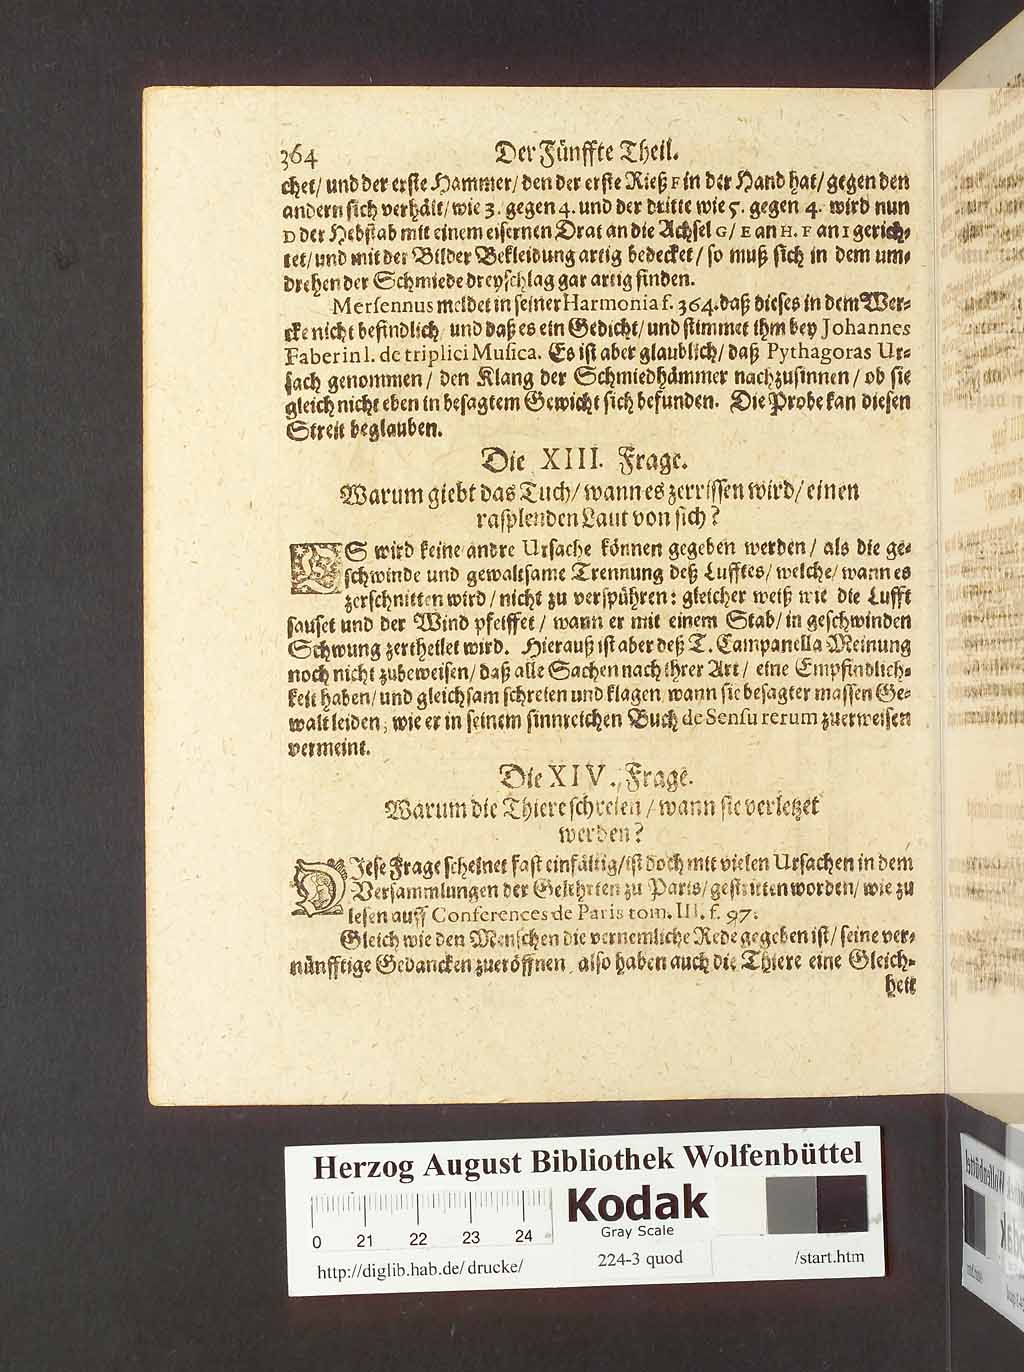 364 Der Fünffte Theil.
chet/ und der erste Hammer/ den der erste Rieß F in der Hand hat/ gegen den
andern sich verhält/ wie 3. gegen 4. und der dritte wie 5. gegen 4. wird nun
D der Hebstab mit einem eisernen Drat an die Achsel G/ E an H. F an I gerich-
tet/ und mit der Bilder Bekleidung artig bedecket/ so muß sich in dem um-
drehen der Schmiede dreyschlag gar artig finden.
Mersennus meldet in seiner Harmonia f. 364. daß dieses in dem Wer-
cke nicht befindlich und daß es ein Gedicht/ und stimmet ihm bey Johannes
Faber in l. de triplici Musica. Es ist aber glaublich/ daß Pythagoras Ur-
sach genommen/ den Klang der Schmiedhämmer nachzusinnen/ ob sie
gleich nicht eben in besagtem Gewicht sich befunden. Die Probe kan diesen
Streit beglauben.
Die XIII. Frage.
Warum giebt das Tuch/ wann es zerrissen wird/ einen
rasplenden Laut von sich?
ES wird keine andre Ursache können gegeben werden/ als die ge-
schwinde und gewaltsame Trennung deß Lufftes/ welche/ wann es
zerschnitten wird/ nicht zu verspühren: gleicher weiß wie die Lufft
sauset und der Wind pfeiffet/ wann er mit einem Stab/ in geschwinden
Schwung zertheilet wird. Hierauß ist aber deß T. Campanella Meinung
noch nicht zubeweisen/ daß alle Sachen nach ihrer Art/ eine Empfindlich-
keit haben/ und gleichsam schreien und klagen wann sie besagter massen Ge-
walt leiden, wie er in seinem sinnreichen Buch de Sensu rerum zuerweisen
vermeint.
Die XIV. Frage.
Warum die Thiere schreien/ wann sie verletzet
werden?
DIese Frage scheinet fast einfältig/ ist doch mit vielen Ursachen in dem
Versammlungen der Gelehrten zu Paris/ gestritten worden/ wie zu
lesen auff Conferences de Paris tom. III. f. 97.
Gleich wie den Menschen die vernemliche Rede gegeben ist/ seine ver-
nünfftige Gedancken zueröffnen also haben auch die Thiere eine Gleich-
heit
Herzog August Bibliothek Wolfenbüttel
Kodak
Gray Scale
0 21 22 23 24
http://diglib.hab.de/drucke/ 224-3 quod /start.htm